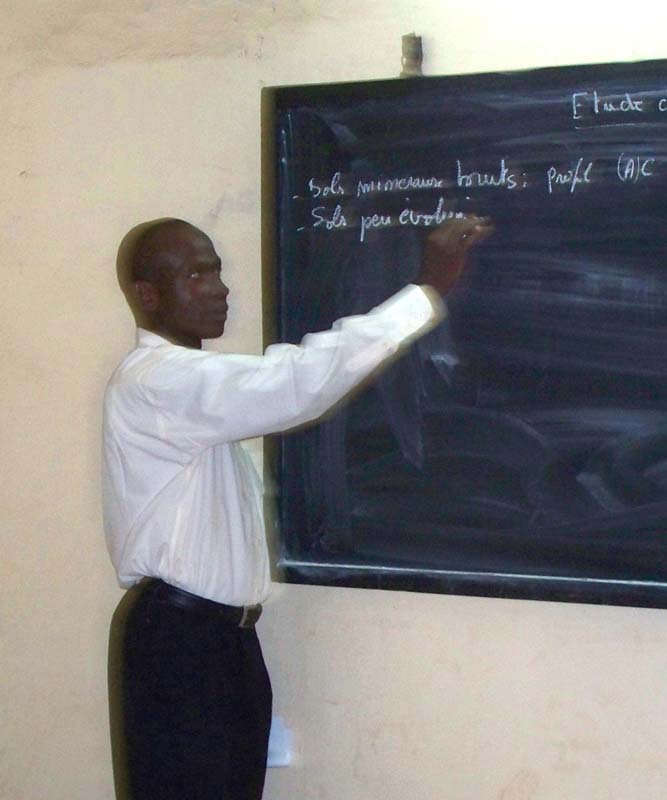 Etude
- Sols mineraux bruts: profil (A)C
- Sols peu évolu